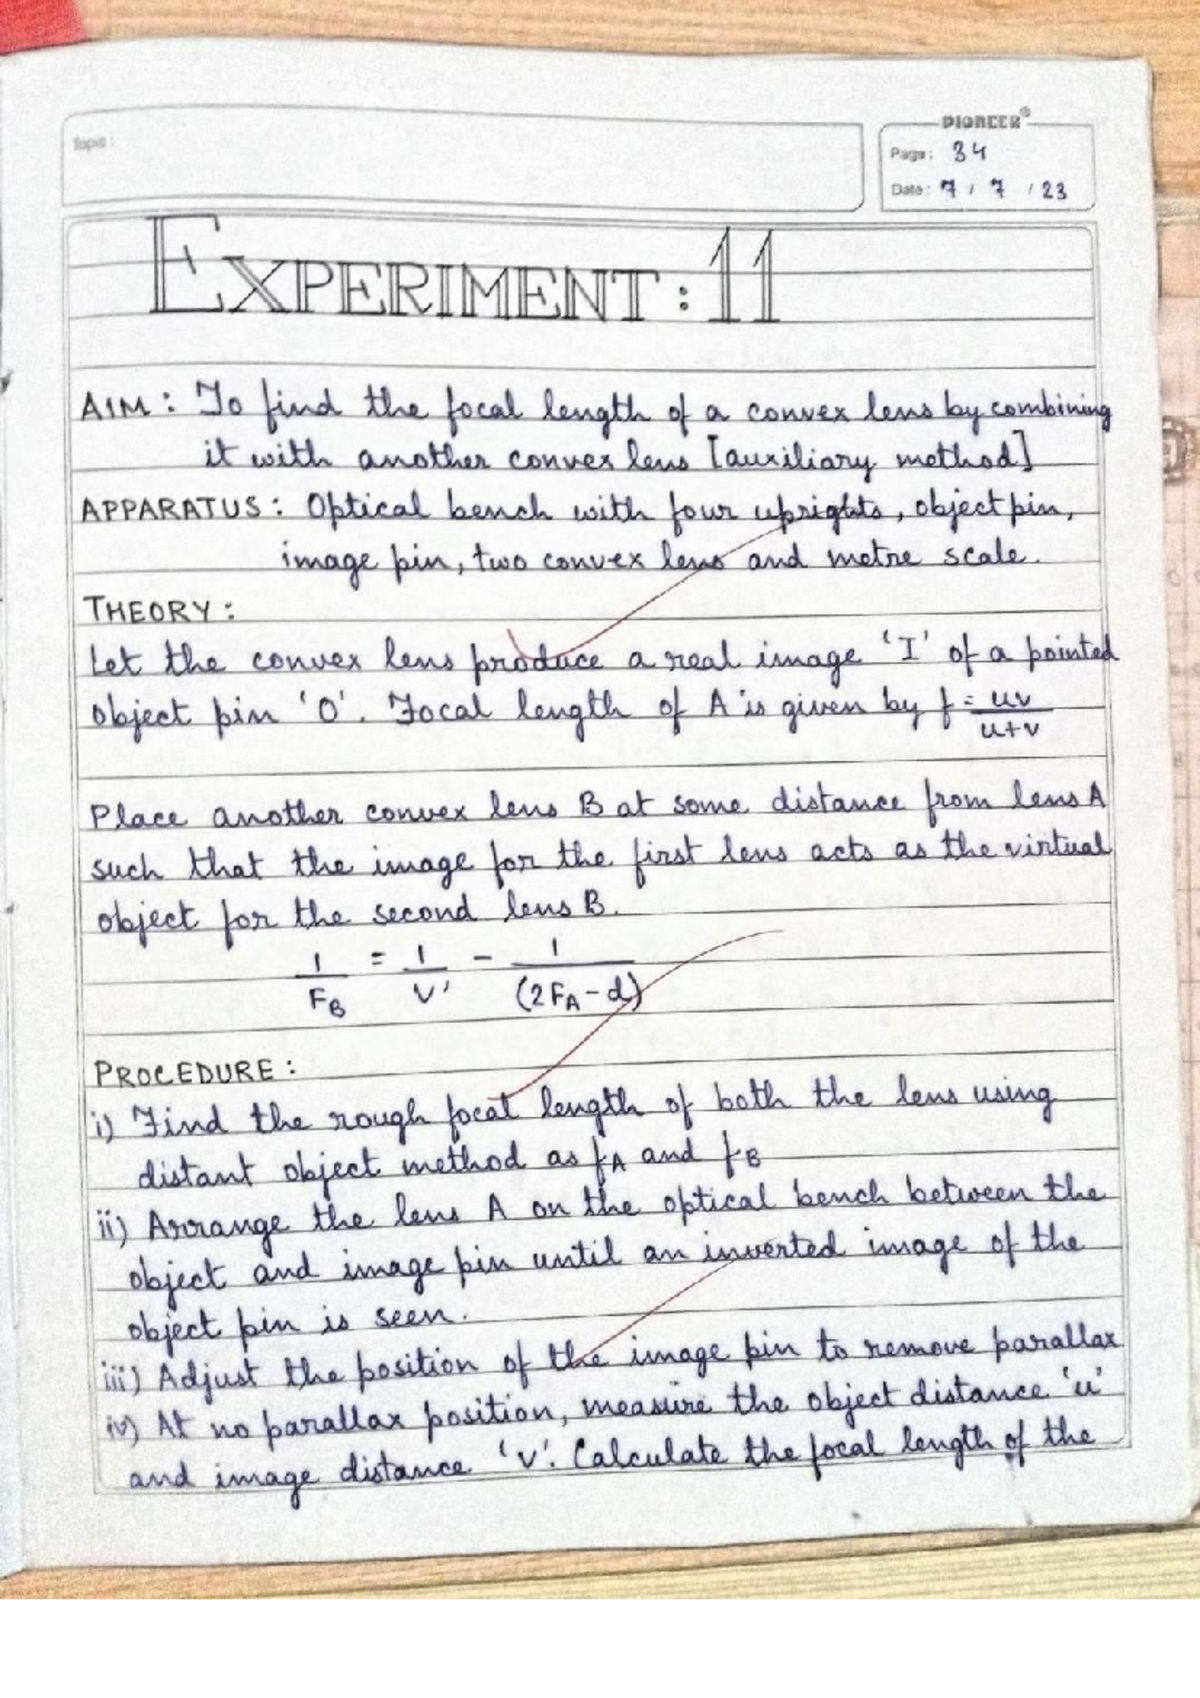 Topic:
PIONEER®
Page: 34
Date: 7 / 7 / 23
EXPERIMENT: 11
AIM: To find the focal length of a convex lens by combining
it with another convex lens [auxiliary method]
APPARATUS: Optical bench with four uprights, object pin,
image pin, two convex lens and metre scale.
THEORY:
Let the convex lens produce a real image 'I' of a pointed
object pin 'O'. Focal length of A is given by f = uv/u+v
Place another convex lens B at some distance from lens A
such that the image for the first lens acts as the virtual
object for the second lens B.
1/FB = 1/V' - 1/(2FA-d)
PROCEDURE:
i) Find the rough focal length of both the lens using
distant object method as fA and fB
ii) Arrange the lens A on the optical bench between the
object and image pin until an inverted image of the
object pin is seen.
iii) Adjust the position of the image pin to remove parallax
iv) At no parallax position, measure the object distance 'u'
and image distance 'v'. Calculate the focal length of the